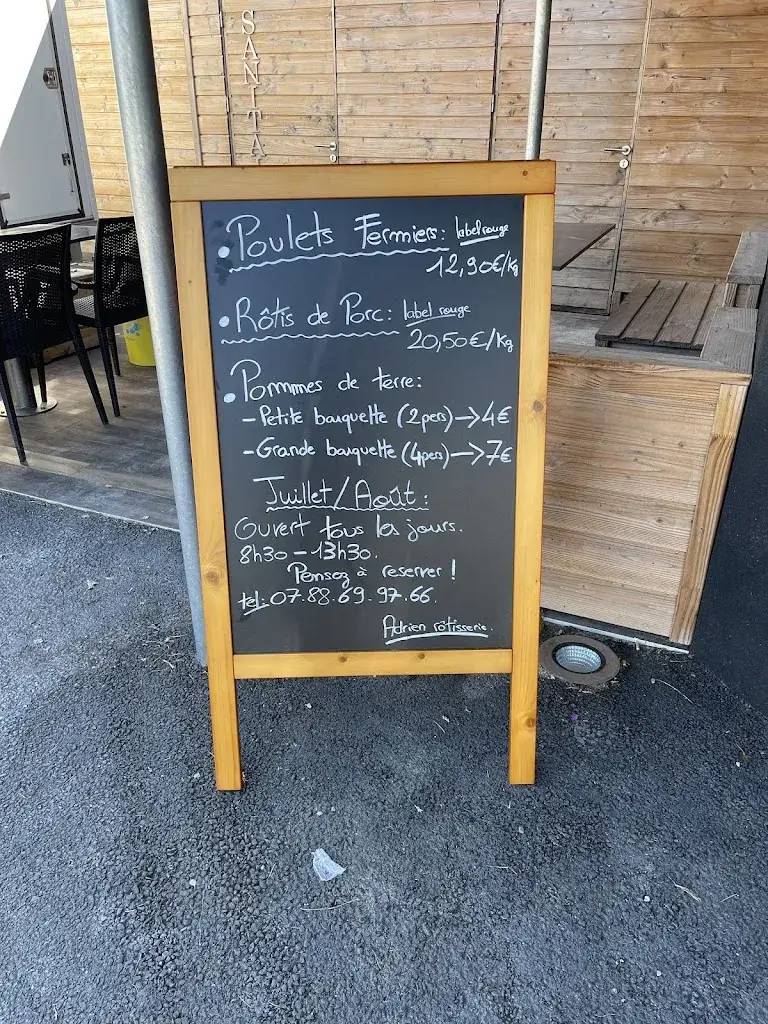 SANITA
• Poulets Fermiers: label rouge
12,90€/Kg
• Rôtis de Porc: label rouge
20,50€/Kg
• Pommes de terre:
- Petite barquette (2pers) → 4€
- Grande barquette (4pers) → 7€
Juillet/Août:
Ouvert tous les jours.
8h30 - 13h30.
Pensez à reserver!
tel: 07.88.69.97.66.
Adrien rôtisserie.